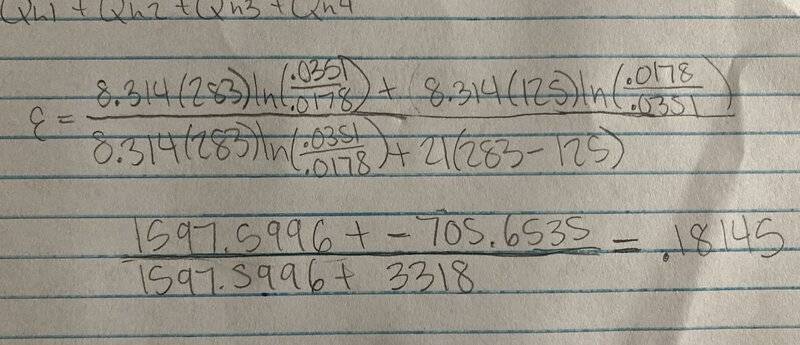 Qh1 + Qh2 + Qh3 + Qh4
ε = 8.314(283)ln(.0351/.0178) + 8.314(125)ln(.0178/.0351)
8.314(283)ln(.0351/.0178) + 21(283-125)
1597.5996 + - 705.6535 = .18145
1597.5996 + 3318